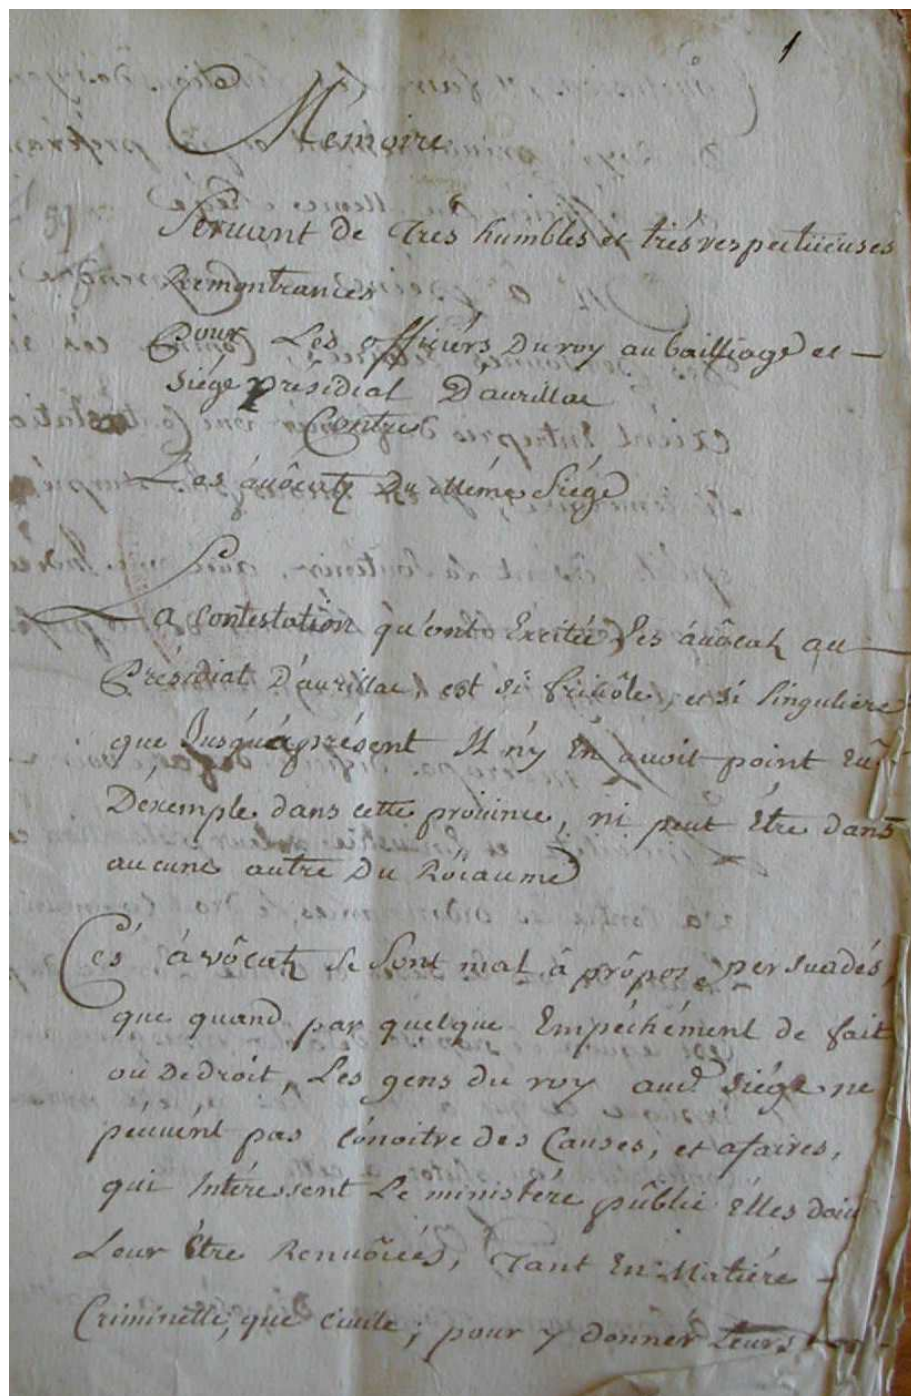 1
Mémoire
Seruant de Trés humbles et trés respectüeuses
Remontrances
Pour Les officiérs Du roy au bailliage et
siége présidial D'aurillac
Contre
Les áuôcatz Du Méme Siége
La contestation qu'ont Excitée Les áuôcatz au
Présidial D'áurillac, est si friuôle, et si singuliére
que Jusqu'á présent Il n'y En auoit point Eû
D'exemple dans cette prouince, ni peut Étre dans
aucune autre Du Róïaume
Cés ávôcatz se sont mal â prôpos persuadés,
que quand par quelque Empéchément de fait
ou De droit, Les gens du roy aud. siége ne
péuuént pas cónoitre des Causes, et afaires,
qui Intéressent Le ministére pûblic Élles doiu
Leur étre Renuôïées, Tant En Matiére
Criminélle, que ciuile; pour y donnér Leurs